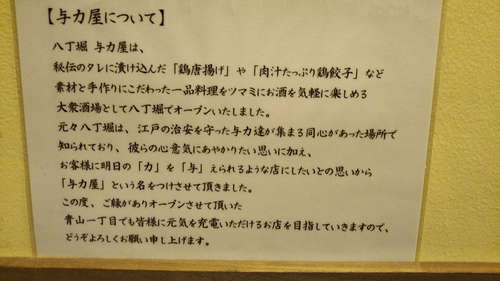 【与力屋について】
八丁堀 与力屋は、
秘伝のタレに漬け込んだ「鶏唐揚げ」や「肉汁たっぷり鶏餃子」など
素材と手作りにこだわった一品料理をツマミにお酒を気軽に楽しめる
大衆酒場として八丁堀でオープンいたしました。
元々八丁堀は、江戸の治安を守った与力達が集まる同心があった場所で
知られており、彼らの心意気にあやかりたい思いに加え、
お客様に明日の「力」を「与」えられるような店にしたいとの思いから
「与力屋」という名をつけさせて頂きました。
この度、ご縁がありオープンさせて頂いた
青山一丁目でも皆様に元気を充電いただけるお店を目指していきますので、
どうぞよろしくお願い申し上げます。